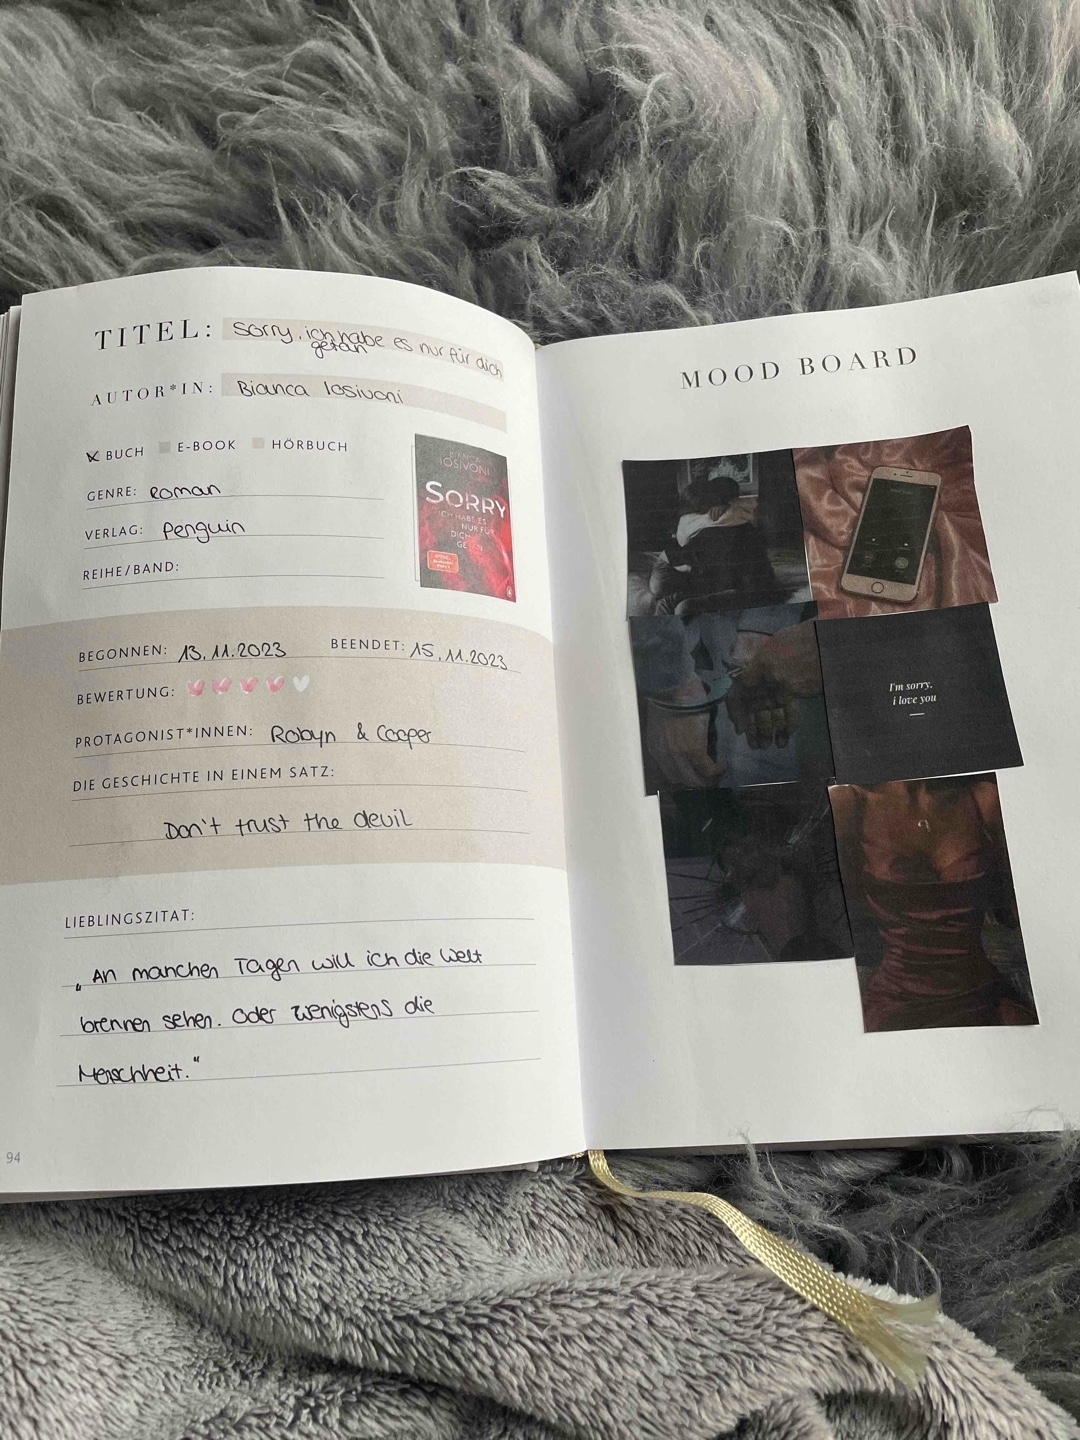 TITEL: Sorry, ich habe es nur für dich
getan
AUTOR*IN: Bianca Iosivoni
BUCH E-BOOK HÖRBUCH
GENRE: Roman
VERLAG: Penguin
REIHE/BAND:
BIANCA
IOSIVONI
SORRY
ICH HABE ES
NUR FÜR
DICH
GETAN
BEGONNEN: 13.11.2023 BEENDET: 15.11.2023
BEWERTUNG:
PROTAGONIST*INNEN: Robyn & Cooper
DIE GESCHICHTE IN EINEM SATZ:
Don't trust the devil
LIEBLINGSZITAT:
„An manchen Tagen will ich die Welt
brennen sehen. Oder wenigstens die
Menschheit."
94
MOOD BOARD
I'm sorry.
i love you